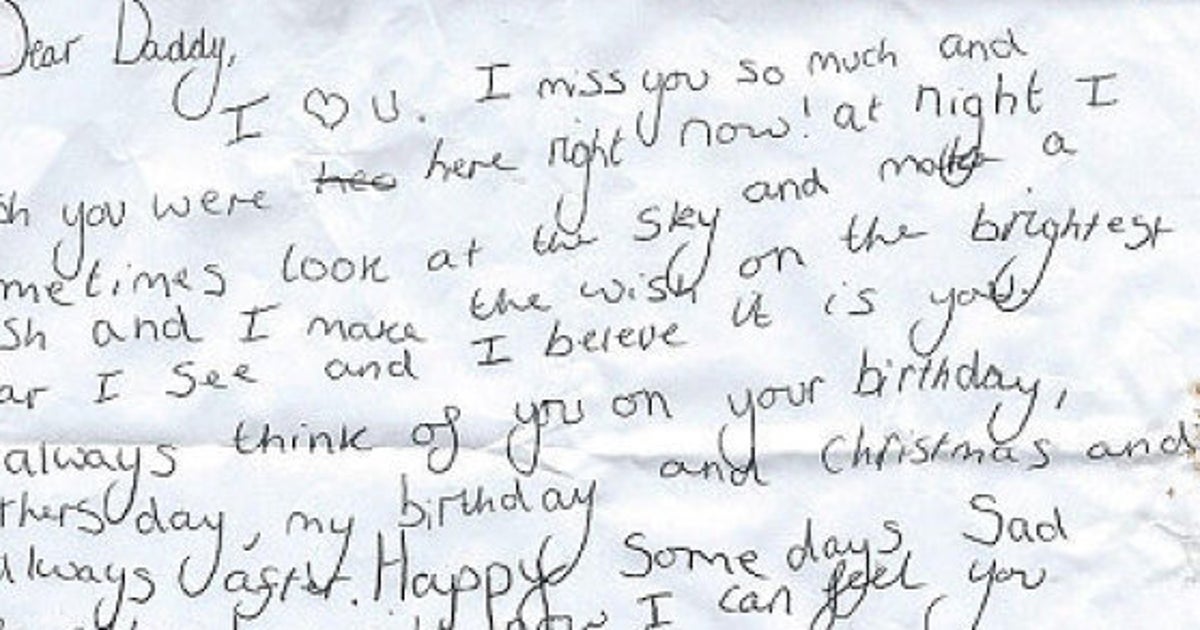 Dear Daddy,
I ♡ U. I miss you so much and
sh you were heo here right now! at night I
metimes look at the sky and make a
sh and I make the wish on the brightest
ar I see and I beleve it is you.
always think of you on your birthday,
thers day, my birthday and Christmas and
always after. Happy Some days, Sad
I can feel you